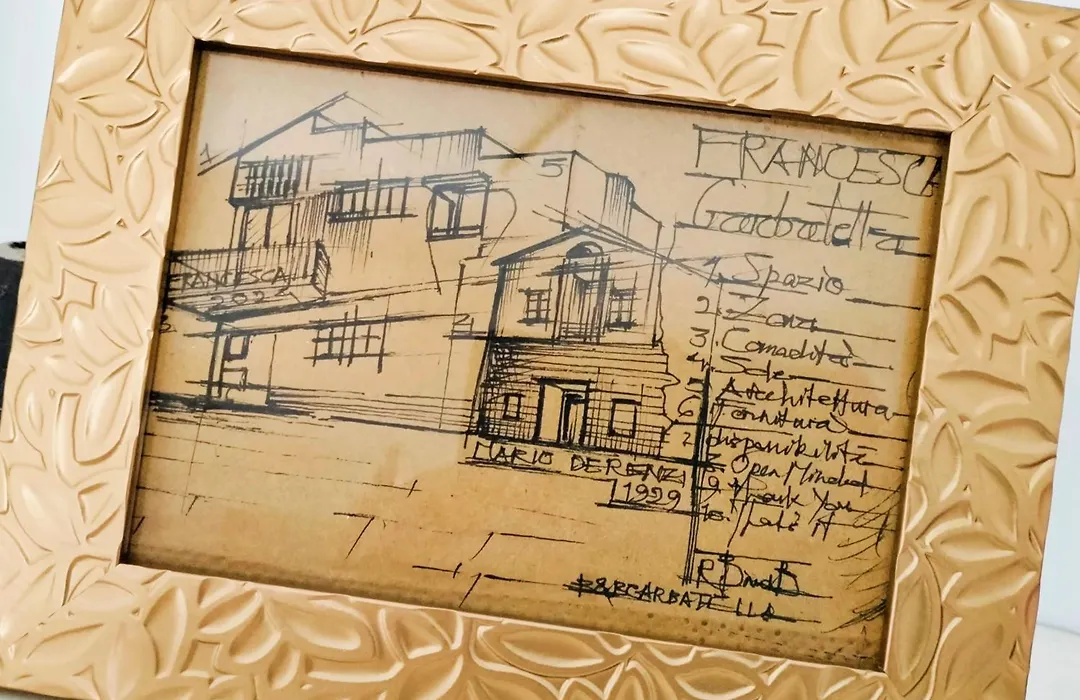 FRANCESCA
Garbatella
1. Spazio
2. Zona
3. Comodità
4. Sole
5. Architettura
6. Fornitura
7. disponibilità
8. Open Minded
9. Thank You
10. That's it
R BandB
B&BGARBATELLA
FRANCESCA
2022
MARIO DE RENZI
1929
1
5
3.
2.